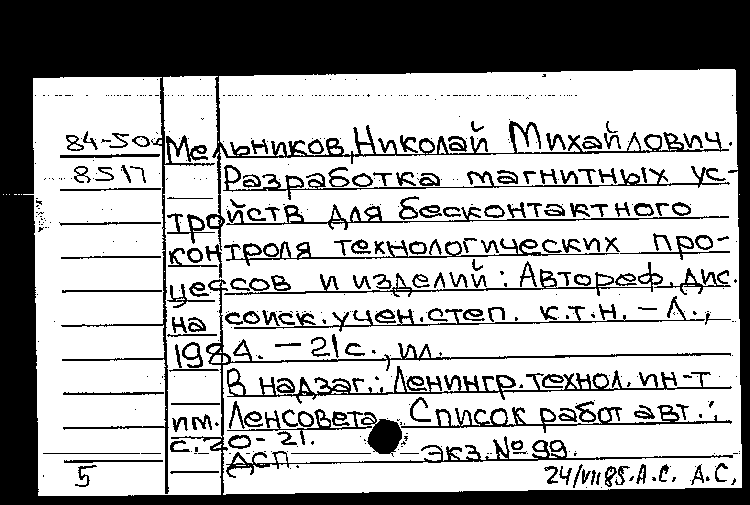 84-50с Мельников, Николай Михайлович.
8517 Разработка магнитных ус-
тройств для бесконтактного
контроля технологических про-
цессов и изделий: Автореф. дис.
на соиск. учен. степ. к.т.н. – Л.,
1984. – 21с., ил.
В надзаг.: Ленингр. технол. ин-т
им. Ленсовета. Список работ авт.:
с. 20-21.
ДСП. Экз. № 99.
5 24/VII85. А.С. А.С,